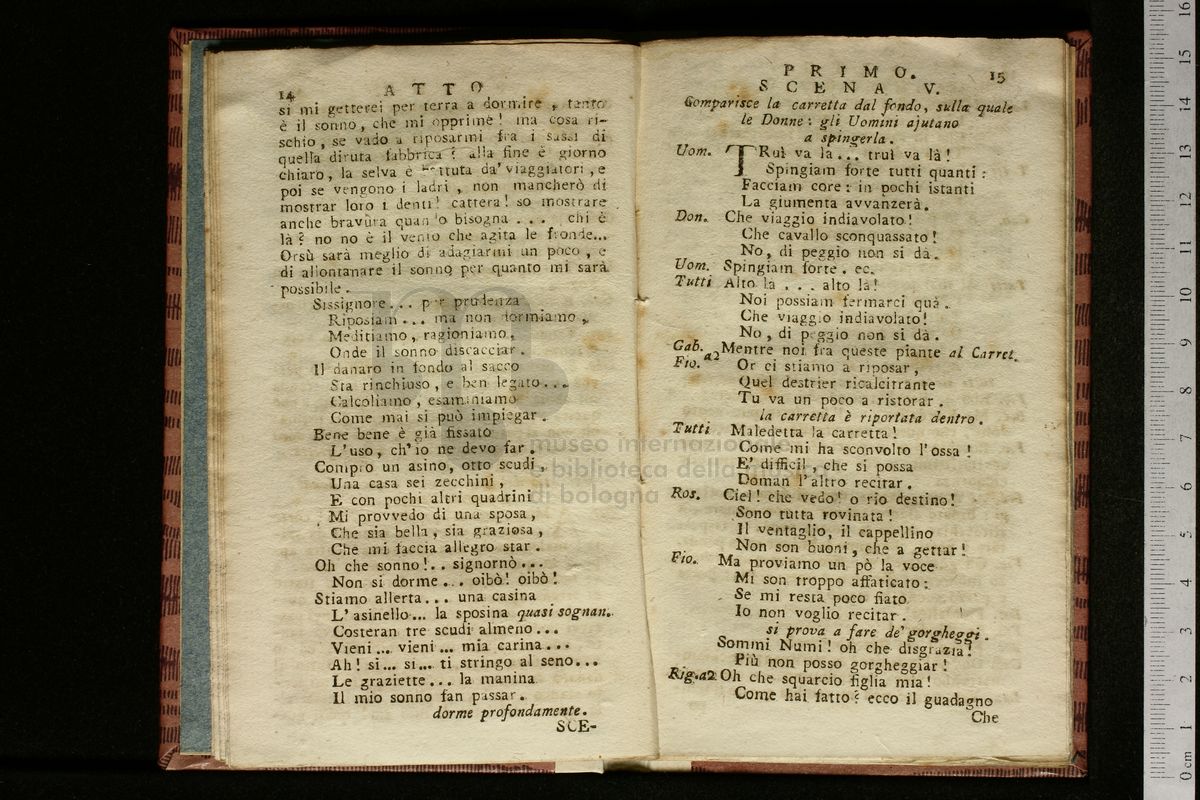 14 ATTO
si mi getterei per terra a dormire, tanto
è il sonno, che mi opprime! ma cosa ri-
schio, se vado a riposarmi fra i sassi di
quella diruta fabbrica? alla fine è giorno
chiaro, la selva è battuta da' viaggiatori, e
poi se vengono i ladri, non mancherò di
mostrar loro i denti! cattera! so mostrare
anche bravùra quando bisogna ... chi è
là? no no è il vento che agita le fronde...
Orsù sarà meglio di adagiarmi un poco, e
di allontanare il sonno per quanto mi sarà
possibile.
Sissignore... per prudenza
Riposiam... ma non dormiamo,
Meditiamo, ragioniamo,
Onde il sonno discacciar.
Il danaro in fondo al sacco
Sta rinchiuso, e ben legato...
Calcoliamo, esaminiamo
Come mai si può impiegar.
Bene bene è già fissato
L'uso, ch'io ne devo far.
Compro un asino, otto scudi,
Una casa sei zecchini,
E con pochi altri quadrini
Mi provvedo di una sposa,
Che sia bella, sia graziosa,
Che mi faccia allegro star.
Oh che sonno!.. signornò...
Non si dorme... oibò! oibò!
Stiamo allerta... una casina
L'asinello... la sposina quasi sognan.
Costeran tre scudi almeno...
Vieni... vieni... mia carina...
Ah! si... si... ti stringo al seno...
Le graziette... la manina
Il mio sonno fan passar.
dorme profondamente.
SCE-
PRIMO. 15
SCENA V.
Comparisce la carretta dal fondo, sulla quale
le Donne: gli Uomini ajutano
a spingerla.
Uom. TRuì va la... truì va là!
Spingiam forte tutti quanti:
Facciam core: in pochi istanti
La giumenta avvanzerà.
Don. Che viaggio indiavolato!
Che cavallo sconquassato!
No, di peggio non si dà.
Uom. Spingiam forte. ec.
Tutti Alto la ... alto là!
Noi possiam fermarci quà.
Che viaggio indiavolato!
No, di peggio non si dà.
Gab. Fio. a2 Mentre noi fra queste piante al Carret.
Or ci stiamo a riposar,
Quel destrier ricalcitrante
Tu va un poco a ristorar.
la carretta è riportata dentro.
Tutti Maledetta la carretta!
Come mi ha sconvolto l'ossa!
E' difficil, che si possa
Doman l'altro recitar.
Ros. Ciel! che vedo! o rio destino!
Sono tutta rovinata!
Il ventaglio, il cappellino
Non son buoni, che a gettar!
Fio. Ma proviamo un pò la voce
Mi son troppo affaticato:
Se mi resta poco fiato
Io non voglio recitar.
si prova a fare de' gorgheggi.
Sommi Numi! oh che disgrazia!
Più non posso gorgheggiar!
Rig.a2 Oh che squarcio figlia mia!
Come hai fatto? ecco il guadagno
Che
museo internazionale
e biblioteca della musica
di bologna
0 cm 1 2 3 4 5 6 7 8 9 10 11 12 13 14 15 16